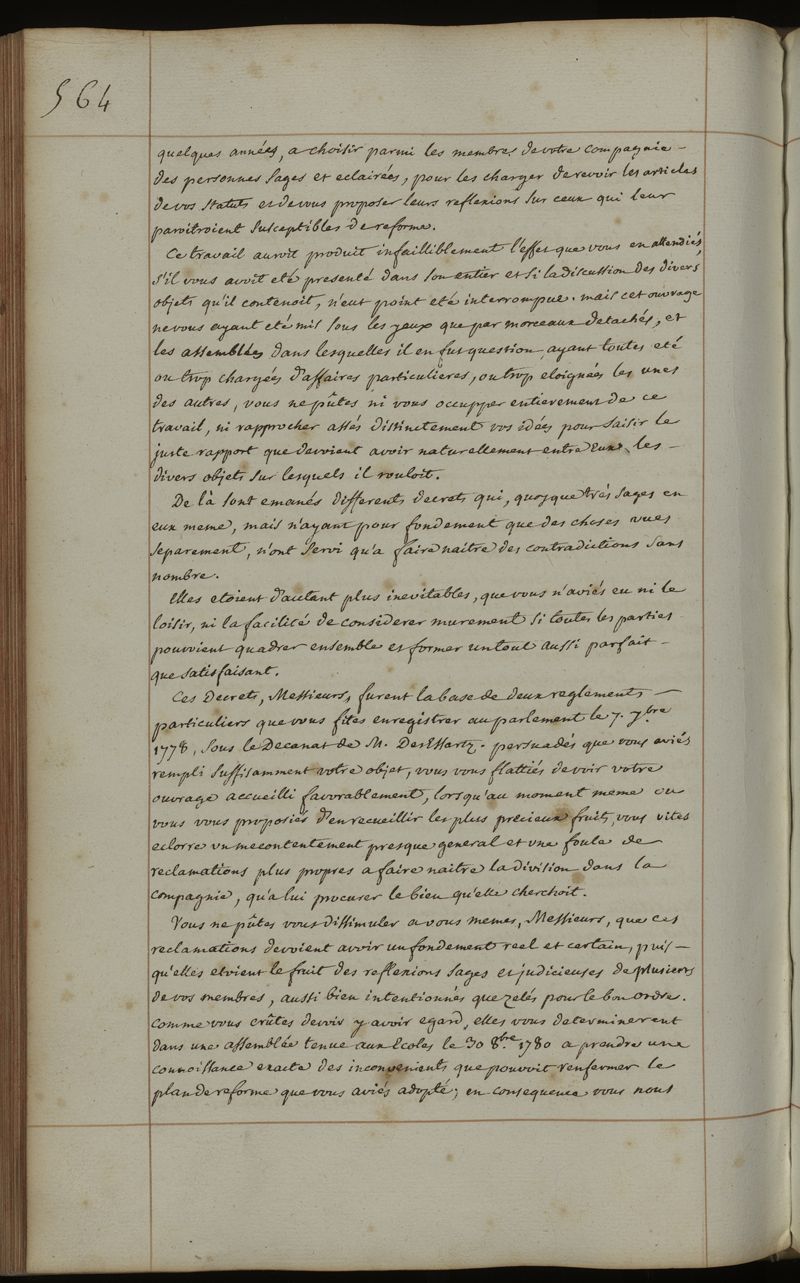 564
quelques années, a choisir parmi les membres de votre compagnie –
des personnes sages et eclairées, pour les charger de revoir les articles
de vos statuts et de vous proposer leurs reflexions sur ceux qui leur
paroitroient susceptibles de reforme.
Ce travail auroit produit infailliblement l'effet que vous en attendiés,
s'il vous avoit eté presenté dans son entier et si la discussion des divers
objets qu'il contenoit, n'eut point eté interrompue. mais cet ouvrage
ne vous ayant eté mis sous les yeux que par morceaux detachés, et
les assemblées dans lesquelles il en fut question, ayant toutes eté
ou trop chargées d'affaires particulieres, ou trop eloignées les unes
des autres, vous ne pûtes ni vous occupper entierement de ce
travail, ni rapprocher assés distinctement vos idées pour saisir le
juste rapport que devoient avoir naturellement entre Eux les –
divers objets sur lesquels il rouloit.
De là sont emanés differents decrets qui, quoyque trés sages en
eux meme, mais n'ayant pour fondement que des choses vues
separement, n'ont servi qu'a faire naitre des contradictions sans
nombre.
Elles etoient d'autant plus inevitables, que vous n'aviés eu ni le
loisir, ni la facilité de considerer murement si toutes les parties
pouvoient quadrer ensemble et former un tout aussi parfait –
que satisfaisant.
Ces Decrets, Messieurs, furent la base de deux reglements –
particuliers que vous fites enregistrer au parlement le 7. 7bre
1778, sous le Decanat de M. DesEssartz. persuadés que vous aviés
rempli suffisamment votre objet, vous vous flattiés de voir votre
ouvrage accueilli favorablement, lorsqu'au moment meme ou
vous vous proposiés d'en recueillir les plus précieux fruits, vous vites
eclorre un mecontentement presque general et une foule de
reclamations plus propres a faire naitre la division dans la
compagnie, qu'a lui procurer le bien qu'elle cherchoit.
Vous ne pûtes vous dissimuler a vous memes, Messieurs, que ces
reclamations devoient avoir un fondement reel et certain, puis –
qu'elles etoient le fruit des reflexions sages et judicieuses de plusieurs
de vos membres, aussi bien intentionnés que zelés pour le bon ordre.
Comme vous crûtes devoir y avoir egard, elles vous determinerent
dans une assemblée tenue aux Ecoles le 30 8bre 1780 a prendre une
connoissance exacte des inconvenients que pouvoit renfermer le
plan de reforme que vous aviés adopté; en consequence vous nous